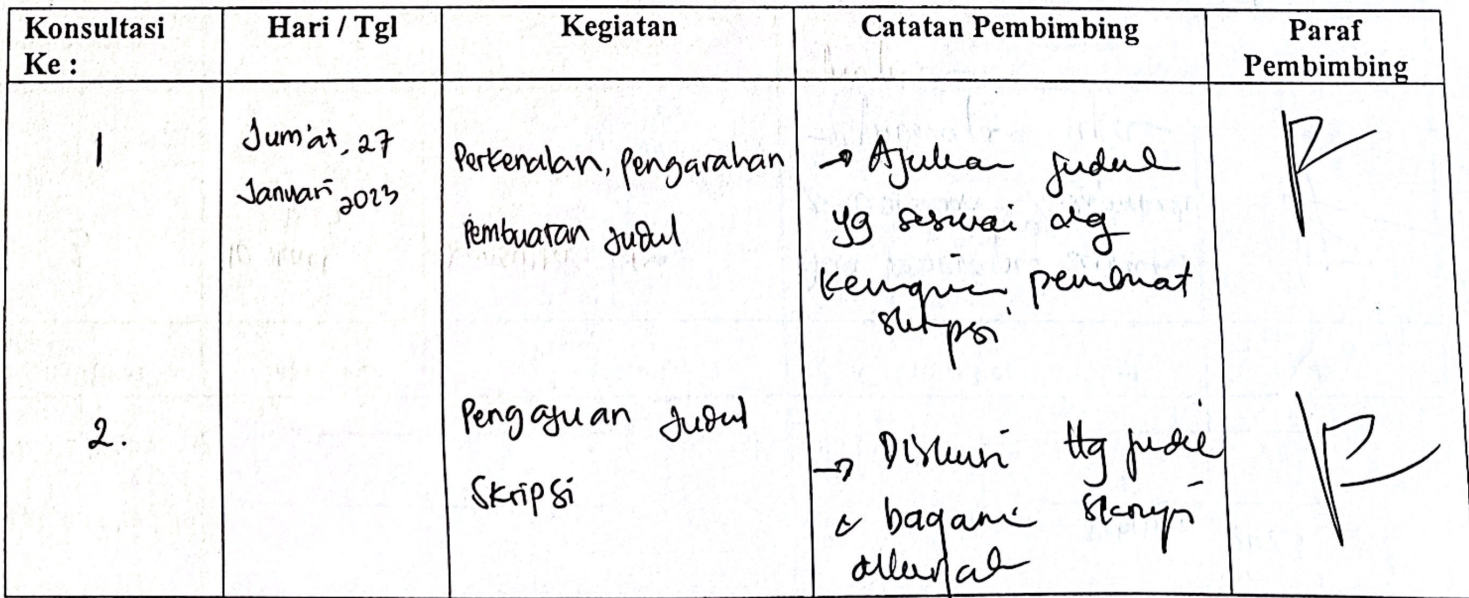 Konsultasi Ke :
Hari / Tgl
Kegiatan
Catatan Pembimbing
Paraf Pembimbing
1
Jum'at, 27
Januari 2023
Perkenalan, Pengarahan
Pembuatan Judul
→ Ajukan judul
yg sesuai dg
pembuat
skripsi
2.
Pengajuan Judul
Skripsi
→ Diskusi ttg judul
skripsi